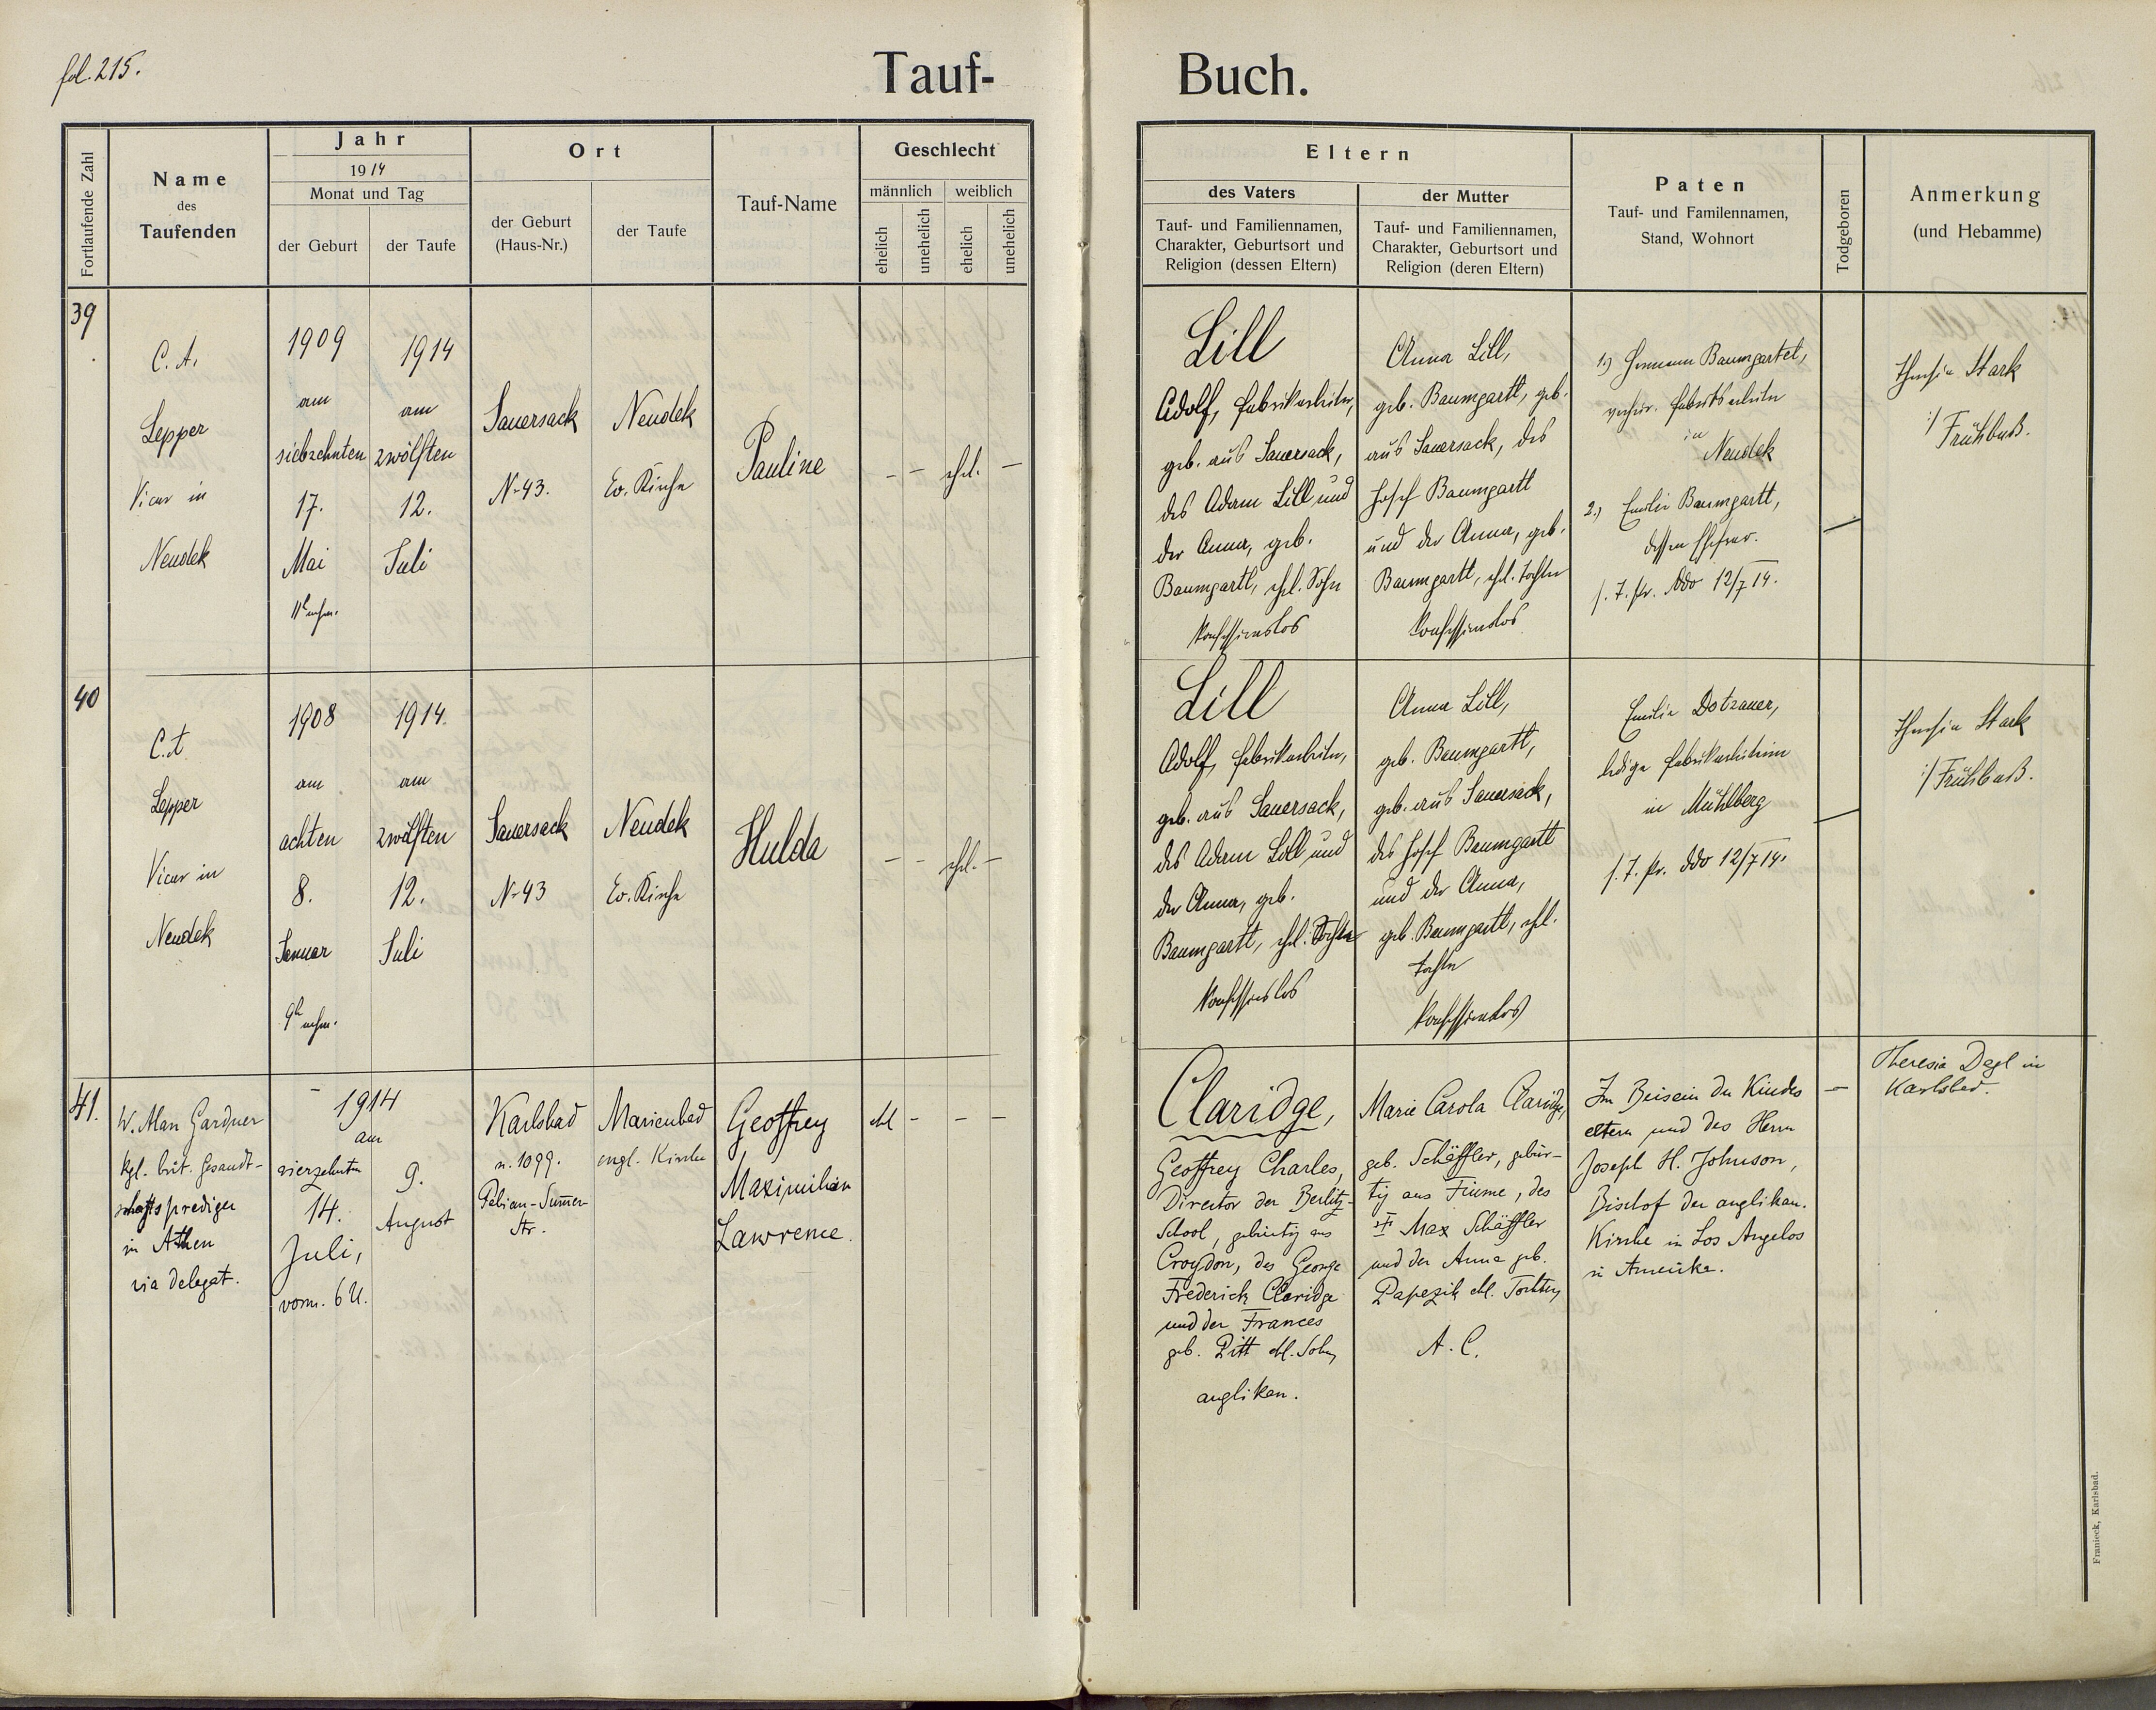 fol. 215.
Tauf-Buch.
Fortlaufende Zahl
Name
des
Taufenden
Jahr
1914
Monat und Tag
der Geburt
der Taufe
Ort
der Geburt
(Haus-Nr.)
der Taufe
Tauf-Name
Geschlecht
männlich
weiblich
ehelich
unehelich
ehelich
unehelich
Eltern
des Vaters
Tauf- und Familiennamen,
Charakter, Geburtsort und
Religion (dessen Eltern)
der Mutter
Tauf- und Familiennamen,
Charakter, Geburtsort und
Religion (deren Eltern)
Paten
Tauf- und Familennamen,
Stand, Wohnort
Todgeboren
Anmerkung
(und Hebamme)
39
C. A.
Lepper
Vicar in
Neudek
1909
am
siebzehnten
17.
Mai
11h nchm.
1914
am
zwölften
12.
Juli
Sauersack
Nr 43.
Neudek
Ev. Kirche
Pauline
- - ehel. -
Lill
Adolf, Fabrikarbeiter,
geb. aus Sauersack,
des Adam Lill und
der Anna, geb.
Baumgartl, ehl. Sohn
konfessionslos
Anna Lill,
geb. Baumgartl, geb.
aus Sauersack, des
Josef Baumgartl
und der Anna, geb.
Baumgartl, ehl. Tochter
konfessionslos
1.) Hermann Baumgartel,
verheir. Fabriksarbeiter
in
Neudek
2.) Emilie Baumgartl,
dessen Ehefrau.
s. T. pr. ddo 12/7 14.
Theresia Stark
:/ Frühbuß.
40
C. A.
Lepper
Vicar in
Neudek
1908
am
achten
8.
Januar
9h nchm.
1914.
am
zwölften
12.
Juli
Sauersack
Nr 43
Neudek
Ev. Kirche
Hulda
- - ehl. -
Lill
Adolf, Fabrikarbeiter,
geb. aus Sauersack,
des Adam Lill und
der Anna, geb.
Baumgartl, ehl.
konfessionslos
Anna Lill,
geb. Baumgartl,
geb. aus Sauersack,
des Josef Baumgartl
und der Anna,
geb. Baumgartl, ehl.
Tochter
konfessionslos
Emilie Dotzauer,
ledige Fabrikarbeiterin
in Mühlberg
s. T. pr. ddo 12/7 14.
Theresia Stark
:/ Frühbuß.
41.
W. Alan Gardner
kgl. brit. Gesandt-
schaftsprediger
in Athen
via delegat.
1914
am
vierzehnten
14.
Juli,
vorm. 6 U.
9.
August
Karlsbad
n. 1099.
Fabian-Summer-
Str.
Marienbad
engl. Kirche
Geoffrey
Maximilian
Lawrence.
ehl - - -
Claridge,
Geoffrey Charles,
Director der Berlitz-
School, gebürtig aus
Croydon, des George
Frederick Claridge
und der Frances
geb. Pitt ehl. Sohn,
anglikan.
Marie Carola Claridge,
geb. Schäffler, gebür-
tig aus Fiume, des
Max Schäffler
und der Anna geb.
Papezik ehl. Tochter,
A. C.
Im Beisein der Kindes
eltern und des Herrn
Joseph H. Johnson,
Bischof der anglikan.
Kirche in Los Angelos
in Amerika.
-
Theresia Degl in
Karlsbad.
Franieck, Karlsbad.